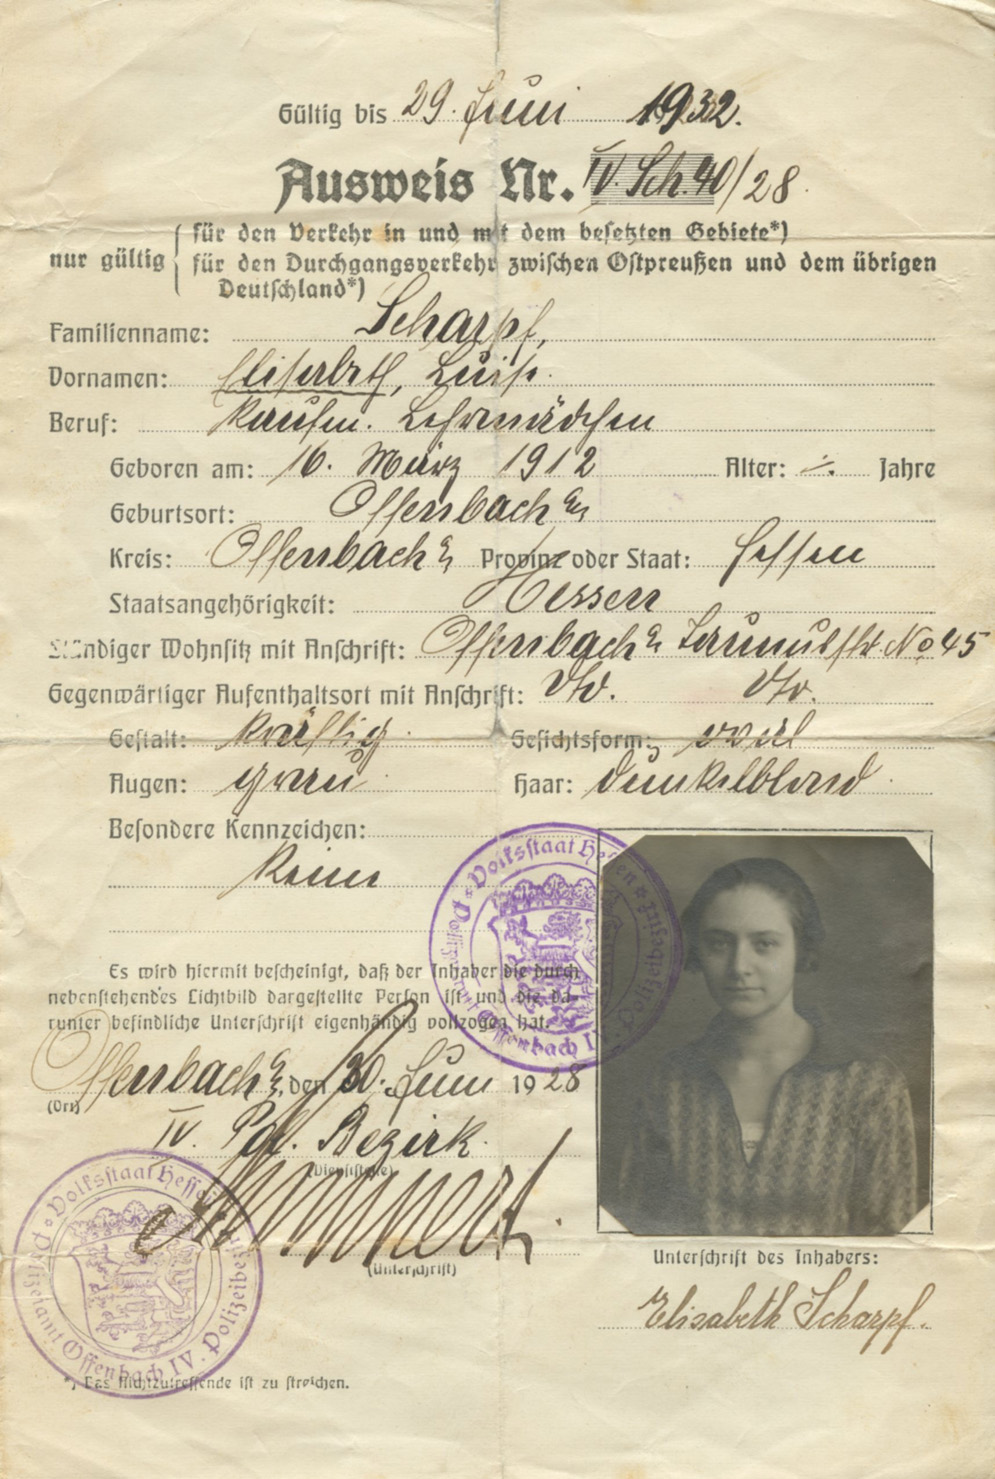 Gültig bis 29. Juni 1932.
Ausweis Nr. IV. Sch 40/28.
nur gültig
für den Verkehr in und mit dem besetzten Gebiete*)
für den Durchgangsverkehr zwischen Ostpreußen und dem übrigen
Deutschland*)
Familienname: Scharpf,
Vornamen: Elisabeth, Luise.
Beruf: Kaufm. Lehrmädchen
Geboren am: 16. März 1912 Alter: ./. Jahre
Geburtsort: Offenbach a/M
Kreis: Offenbach a/M Provinz oder Staat: Hessen
Staatsangehörigkeit: Hessen
Ständiger Wohnsitz mit Anschrift: Offenbach a/M No 45
Gegenwärtiger Aufenthaltsort mit Anschrift: Dto. Dto.
Gestalt: kräftig. Gesichtsform: oval
Augen: grau. Haar: dunkelblond.
Besondere Kennzeichen:
Keine
Es wird hiermit bescheinigt, daß der Inhaber die durch
nebenstehendes Lichtbild dargestellte Person ist und die da-
runter befindliche Unterschrift eigenhändig vollzogen hat.
Offenbach a/M, den 30. Juni 1928
(Ort)
IV. Pol. Bezirk.
(Dienststelle)
(Unterschrift)
Volksstaat Hessen
Polizeiamt Offenbach IV. Polizeibezirk
Unterschrift des Inhabers:
Elisabeth Scharpf.
Volksstaat Hessen
Polizeiamt Offenbach IV. Polizeibezirk
*) Das Nichtzutreffende ist zu streichen.